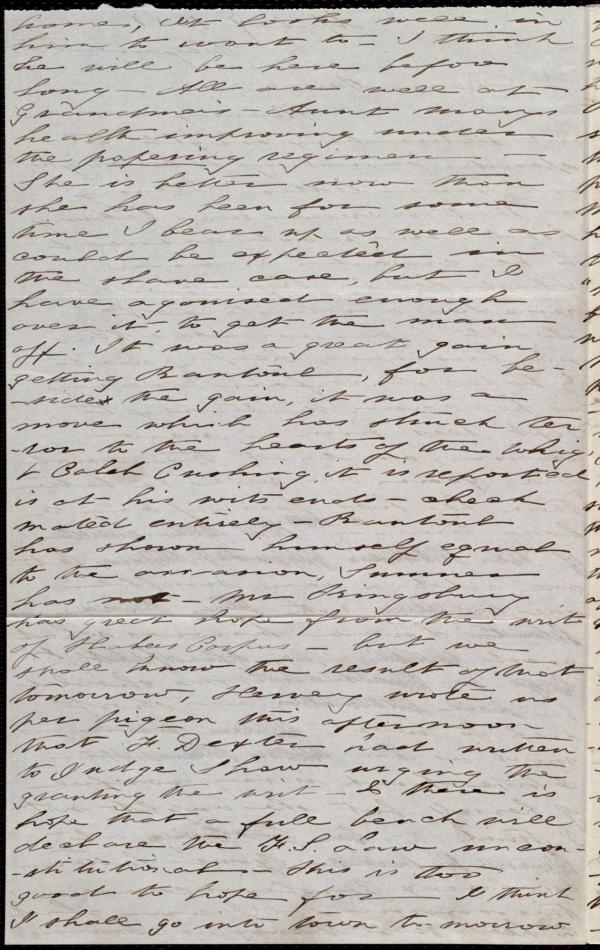 home, It looks well in
him to want to = I think
he will be here before
long - All are well at
Grandma's - Aunt Marys
health improving under
the papering regimen -
She is better now than
she has been for some
time I bear up as well as
could be expected in
the slave case, but I
have agonised enough
over it, to get the man
off. It was a great gain
getting Rantoul, for be-
-sides the gain, it was a
move which has struck ter
-ror to the hearts of the Whigs
& Caleb Cushing it is reported
is at his wits ends - check
mated entirely - Rantoul
has shown himself equal
to the occasion, Sumner
has not - Mr Kingsbury
has great hope from the writ
of Habeas Corpus - but we
shall know the result of that
tomorrow, Harvey wrote us
per pigeon this afternoon
that F. Dexter had written
to Judge Shaw urging the
granting the writ - & there is
hope that a full bench will
declare the F. S. Law uncon-
-stitutional - this is too
good to hope for - I think
I shall go into town to-morrow